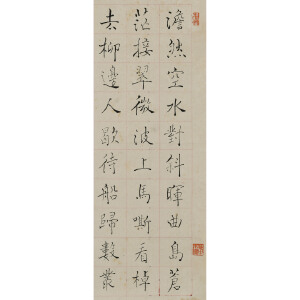 澹然空水對斜暉曲島蒼
茫接翠微波上馬嘶看棹
去柳邊人歇待船歸數叢